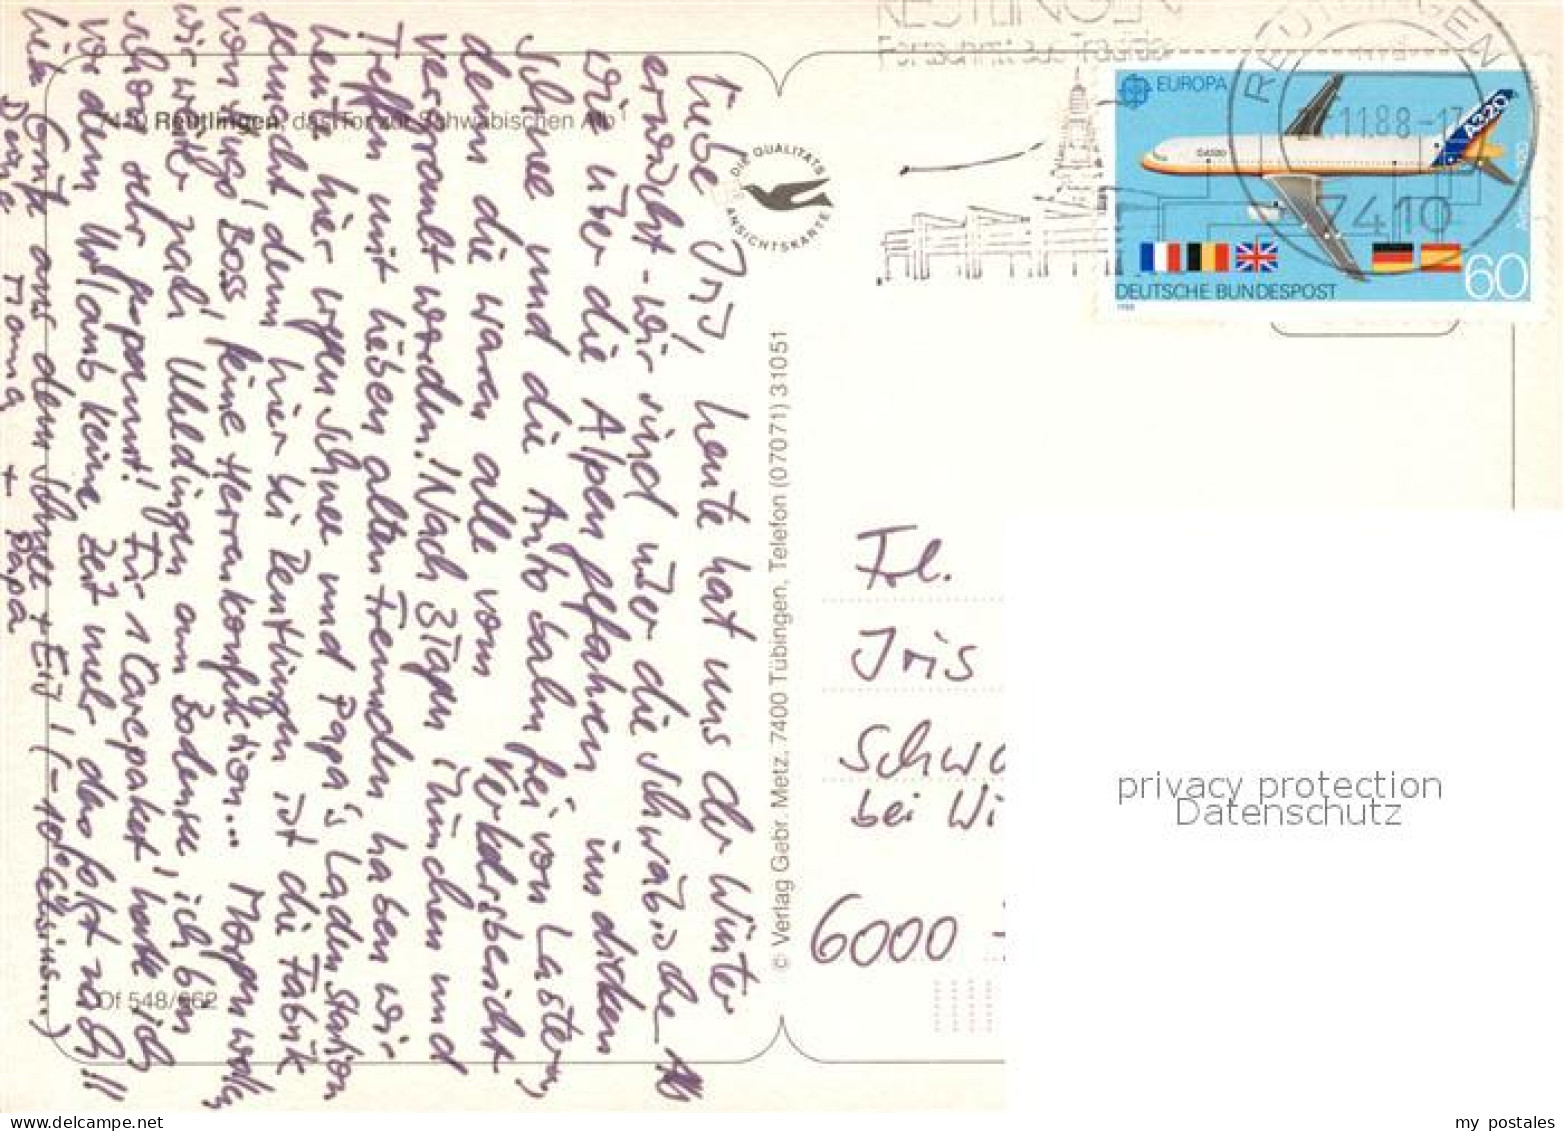 REUTLINGEN
REUTLINGEN
11.88-17
7410
EUROPA
A320
Airbus A320
DEUTSCHE BUNDESPOST
60
1988
7410 Reutlingen, das Tor zur Schwäbischen Alb
DIE QUALITÄTS
ANSICHTSKARTE
© Verlag Gebr. Metz, 7400 Tübingen, Telefon (07071) 31051
Of 548/862
Liebe Iris, heute hat uns der Winter
erwischt - wir sind über die schwäbische Alb
wie über die Alpen gefahren, im dicken
Schnee und die Autobahn frei von Lastern,
denn die waren alle vom Verkehrsbericht
vergrault worden! Nach 3 Tagen München und
Treffen mit lieben alten Freunden haben wir
heute hier wegen Schnee und Papa's Ladenstation
gemacht, denn hier bei Reutlingen ist die Fabrik
von Hugo Boss, feine Herrenkonfektion... Morgen wollen
wir weiter nach Uhldingen am Bodensee, ich bin
schon sehr gespannt! Für 1 Carepaket hatte ich
vor dem Urlaub keine Zeit mehr, das folgt noch!!
Liebe Grüße aus dem Schnee + Eis! (-10° Celsius....)
Deine Mama + Papa
Frl.
Iris
Schwa
bei Wi
6000
privacy protection
Datenschutz
my_postales